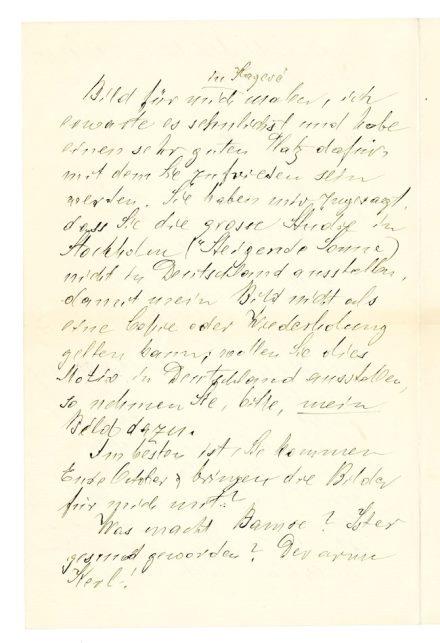 in Kagerö
Bild für mich malen, ich
erwarte es sehnlichst und habe
einen sehr guten Platz dafür,
mit dem Sie zufrieden sein
werden. Sie haben mir zugesagt,
dass Sie die grosse Studie in
Stockholm ("Steigende Sonne")
nicht in Deutschland ausstellen,
damit mein Bild nicht als
eine Copie oder Wiederholung
gelten kann; wollen Sie dies
Motiv in Deutschland ausstellen,
so nehmen Sie, bitte, mein
Bild dazu.
Am besten ist, Sie kommen
Ende October & bringen die Bilder
für mich mit?
Was macht Bamse? Ist er
gesund geworden? Der arme
Kerl!